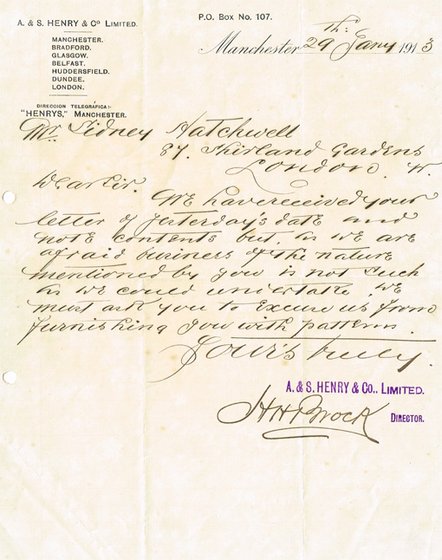 A. & S. HENRY & Co LIMITED.
P.O. BOX NO. 107.
MANCHESTER.
BRADFORD.
GLASGOW.
BELFAST.
HUDDERSFIELD.
DUNDEE.
LONDON.
DIRECCION TELEGRÁFICA:-
"HENRYS," MANCHESTER.
Manchester 29th Jany 1913
Mr. Sidney Hatchwell
87. Shirland Gardens
London. W.
Dear Sir.
We have received your
letter of yesterday's date and
note contents but as we are
afraid business of the nature
mentioned by you is not such
as we could undertake. We
must ask you to excuse us from
furnishing you with pattern.
Yours truly.
A. & S. HENRY & CO., LIMITED.
DIRECTOR.